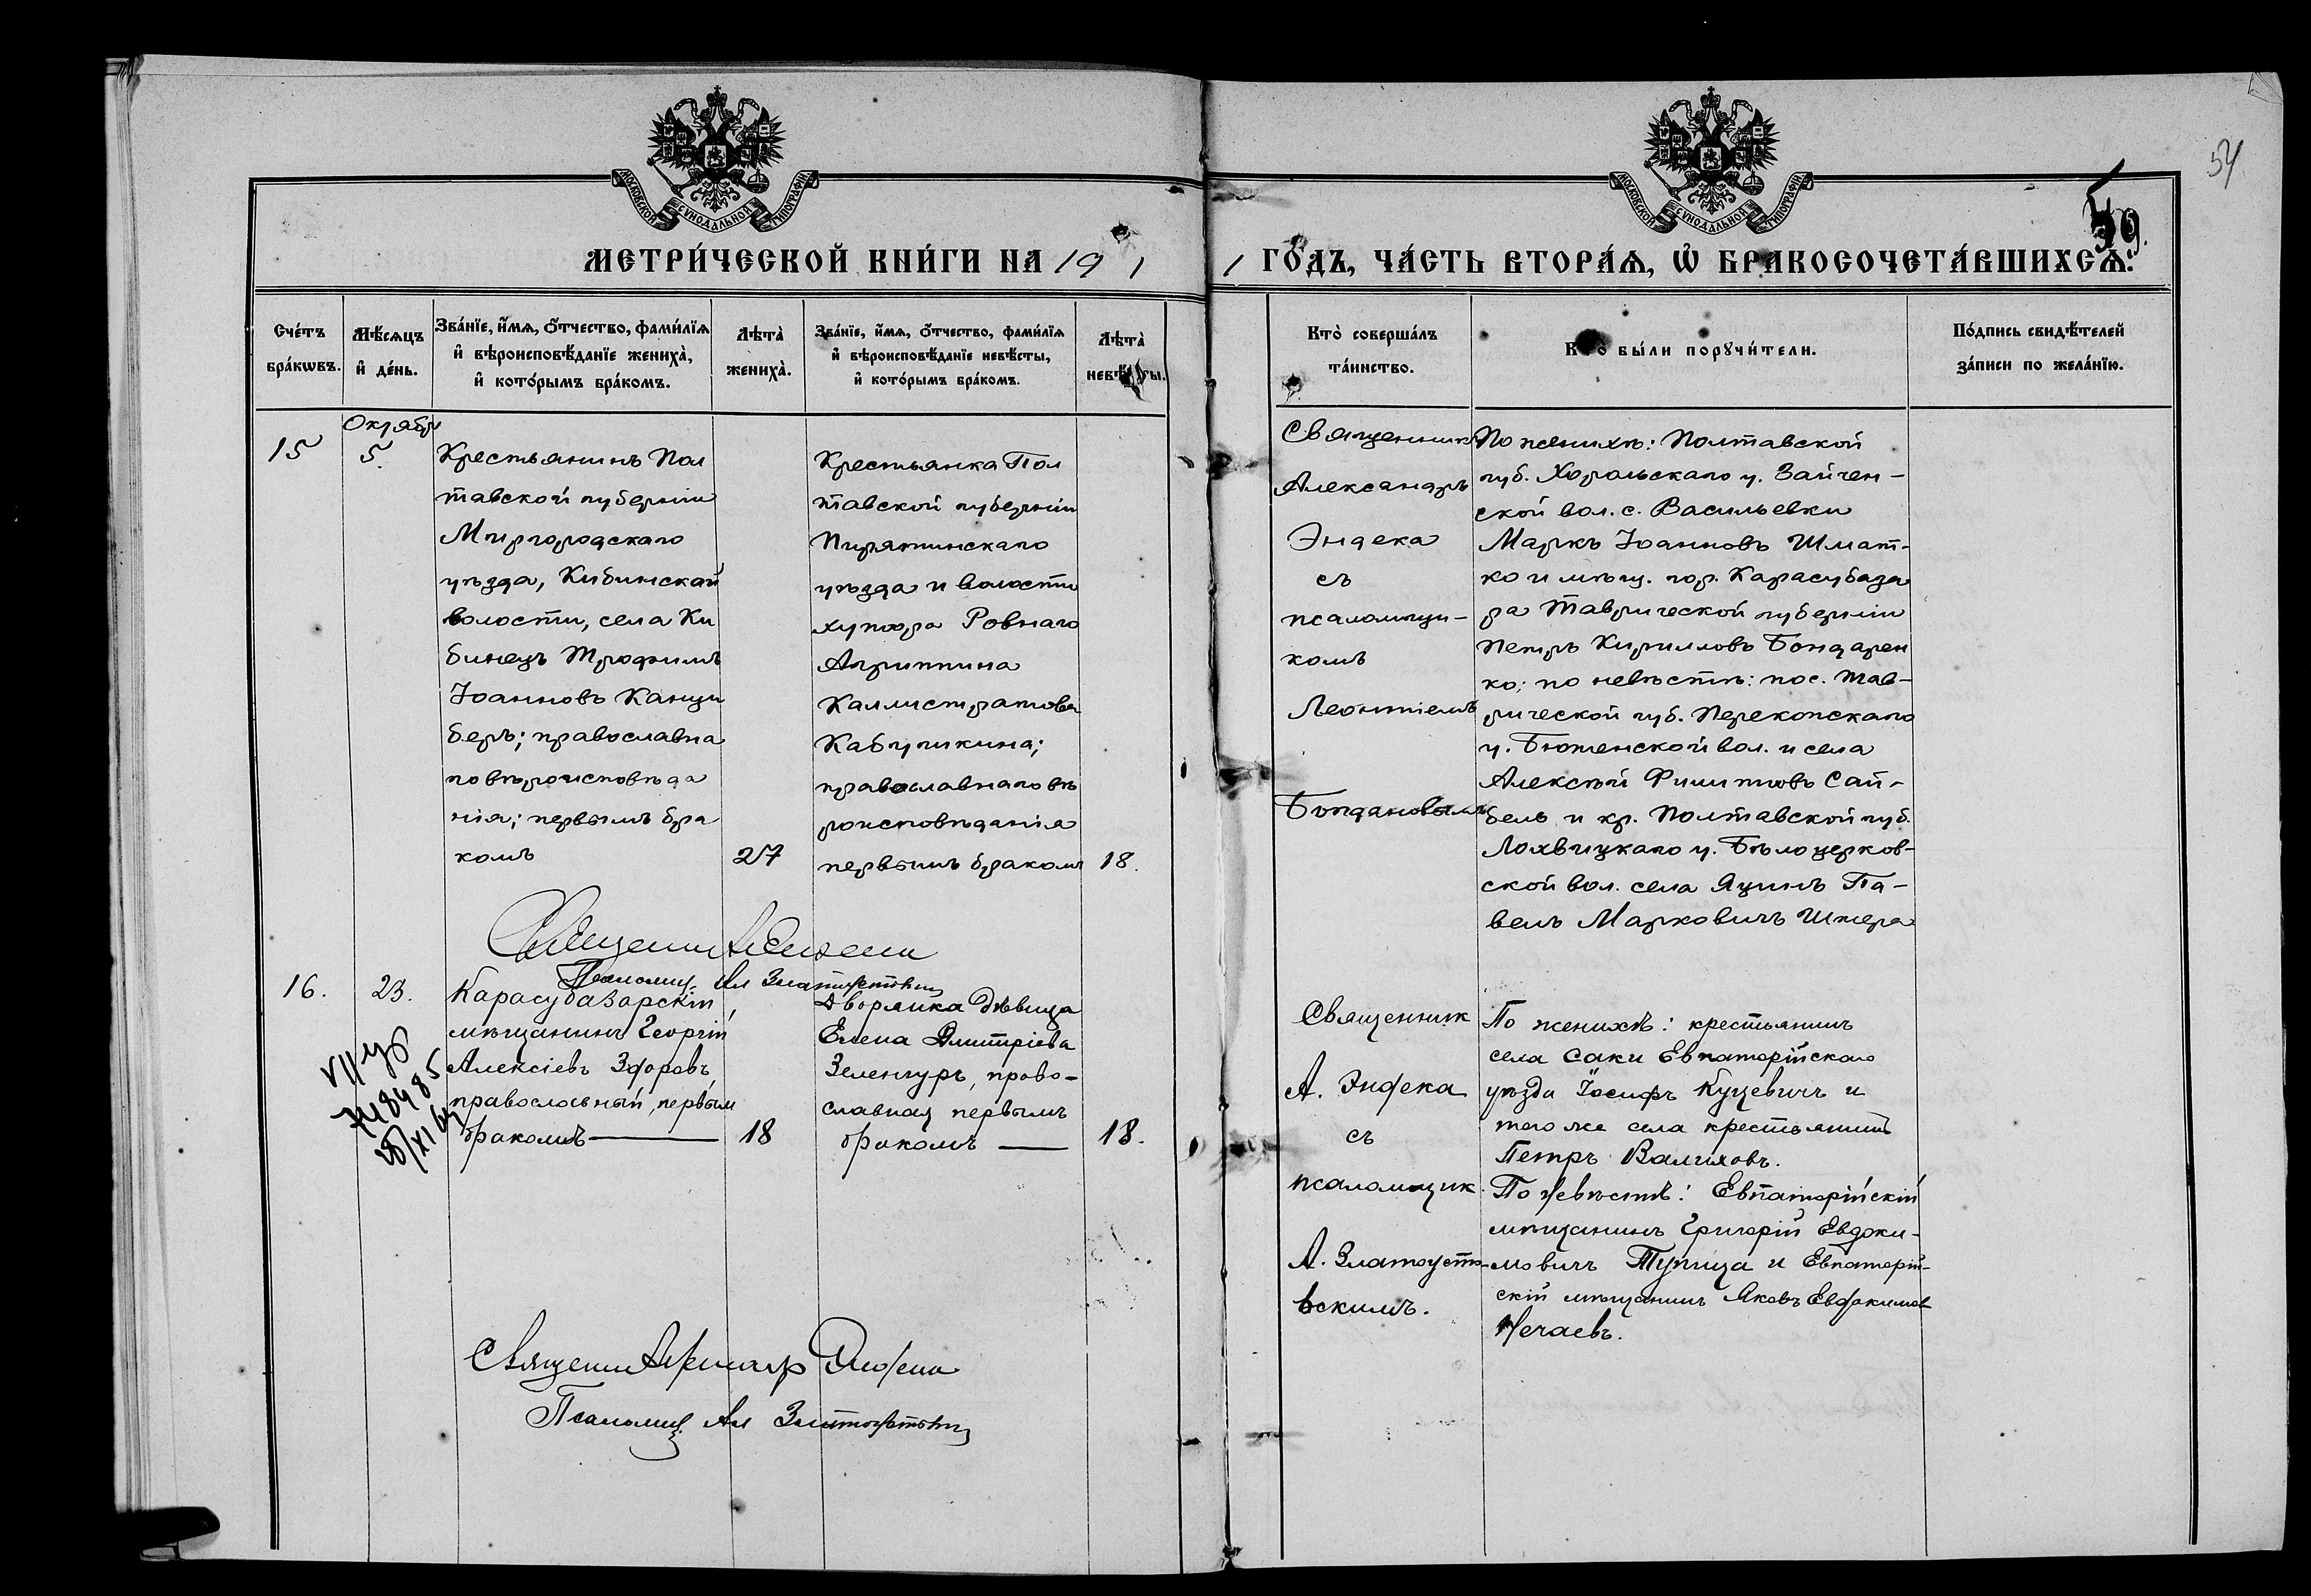 54
59.
МОСКОВСКОЙ СѴНОДАЛЬНОЙ ТИПОГРАФІИ
МОСКОВСКОЙ СѴНОДАЛЬНОЙ ТИПОГРАФІИ
МЕТРИ́ЧЕСКОЙ КНИ́ГИ НА 191
1 ГО́ДЪ, ЧА́СТЬ ВТОРА́Ѧ, Ѡ҆ БРАКОСОЧЕТА́ВШИХСѦ:
Сче́тъ
бра́кѡвъ.
Мѣ́сѧцъ
и҆ де́нь.
Зва́нїе, и҆́мѧ, ѻ҆́тчество, фами́лїѧ
и҆ вѣроисповѣ́данїе жениха̀,
и҆ кото́рымъ бра́комъ.
Лѣта̀
жениха̀.
Зва́нїе, и҆́мѧ, ѻ҆́тчество, фами́лїѧ
и҆ вѣроисповѣ́данїе невѣ́сты,
и҆ кото́рымъ бра́комъ.
Лѣта̀
невѣ́сты.
Кто̀ соверша́лъ
та́инство.
Кто̀ бы́ли порꙋчи́тели.
По́дпись свидѣ́телей
за́писи по жела́нїю.
15
Октябр
5.
Крестьянинъ Пол
тавской губерніи
Миргородскаго
уѣзда, Кибинской
волости, села Ки
бинецъ Трофимъ
Іоанновъ Канцы
беръ; православна
го вѣроисповѣда
нія; первымъ бра
комъ
27
Крестьянка Пол
тавской губерніи
Пирятинскаго
уѣзда и волости
хутора Ровнаго
Агриппина
Каллистратова
православнаго вѣ
роисповѣданія
первымъ бракомъ
18.
Священникъ
Александръ
Эндека
съ
псаломщи-
комъ
Леонтіемъ
Богдановымъ
По женихѣ: Полтавской
губ. Хорольскаго у. Зайчен-
ской вол. с. Васильевки
Маркъ Іоанновъ Шмат-
ко и мѣщ. гор. Карасубаза
ра Таврической губерніи
Петръ Кирилловъ Бондарен
ко; по невѣстѣ: пос. Тав-
рической губ. Перекопскаго
у. Бютенской вол. и села
Алексѣй Филиповъ Сай-
бель и кр. Полтавской губ.
Лохвицкаго у. Бѣлоцерков-
ской вол. села Яцинъ Па-
велъ Марковичъ Шкера
Священ А Эндека
Псаломщ. Ал Златоустовскій
16.
23.
Карасубазарскій
мѣщанинъ Георгій
Алексіевъ Здоровъ
православный, первым
бракомъ
18
Дворянка дѣвица
Елена Димитріева
Зеленгуръ, право-
славная первымъ
бракомъ
18.
Священник
А. Эндека
съ
псаломщик.
А. Златоусто-
вскимъ.
По женихѣ: крестьянинъ
села Саки Евпаторійскаго
уѣзда Іосифъ Куцевичъ и
того же села крестьянинъ
Петръ Валиховъ.
По невѣстѣ: Евпаторійскій
мѣщанинъ Григорій Евдоки-
мовичъ Тупица и Евпаторій-
скій мѣщанинъ Яковъ Евдокимов
Нечаевъ.
Священ Александр Эндека
Псаломщ. Ал Златоустовскій